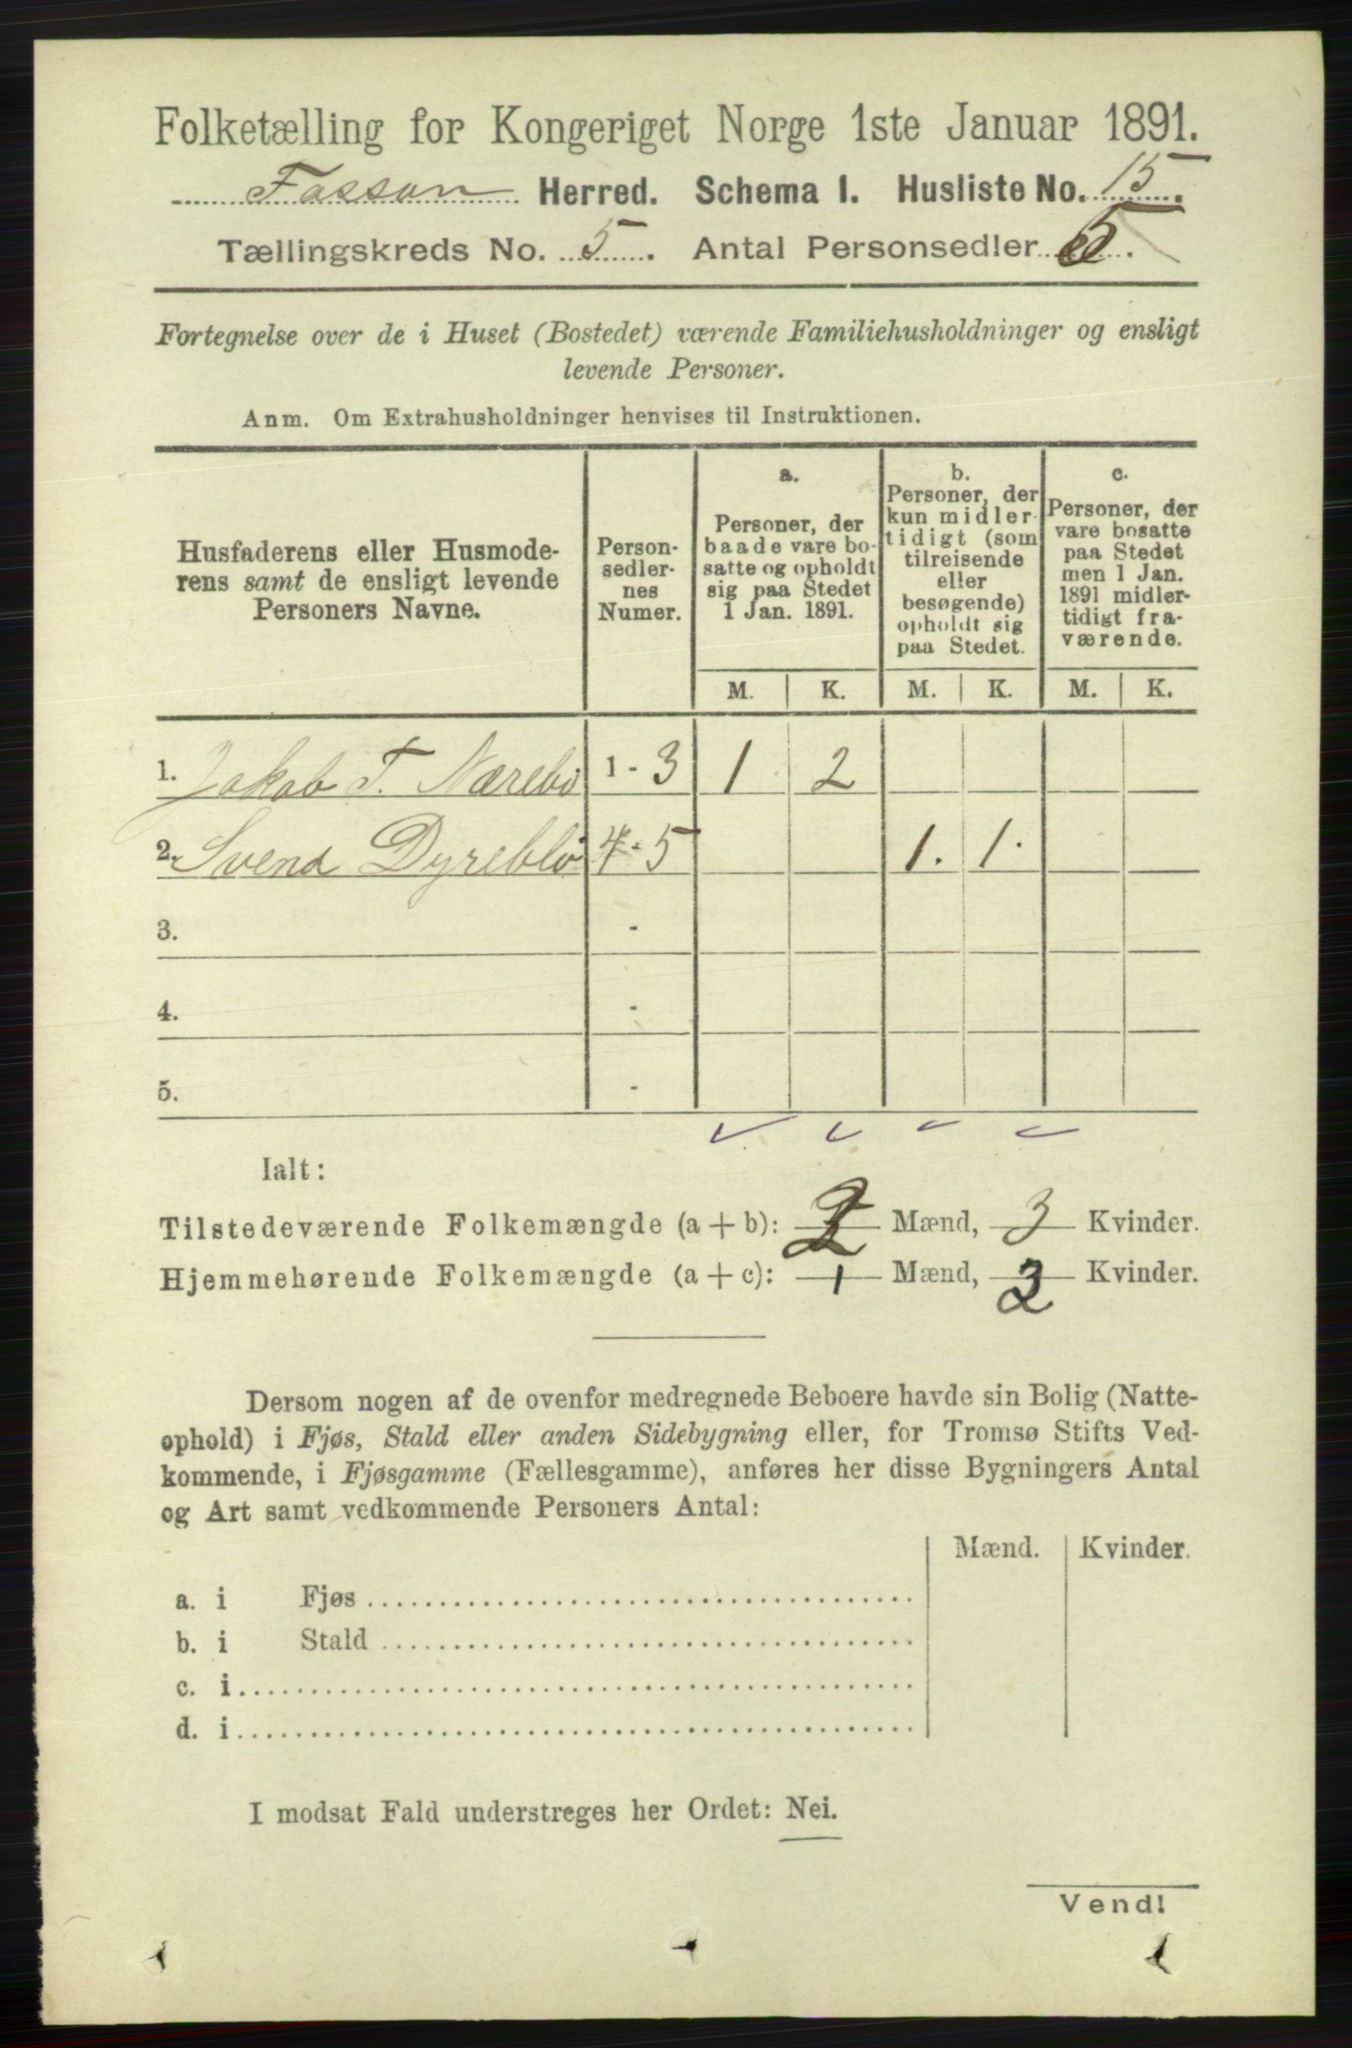 Folketælling for Kongeriget Norge 1ste Januar 1891.
Fossan Herred. Schema I. Husliste No. 15.
Tællingskreds No. 5. Antal Personsedler 5.
Fortegnelse over de i Huset (Bostedet) værende Familiehusholdninger og ensligt
levende Personer.
Anm. Om Extrahusholdninger henvises til Instruktionen.
Husfaderens eller Husmode-
rens samt de ensligt levende
Personers Navne.
Person-
sedler-
nes
Numer.
a.
Personer, der
baade vare bo-
satte og opholdt
sig paa Stedet
1 Jan. 1891.
b.
Personer, der
kun midler-
tidigt (som
tilreisende
eller
besøgende)
opholdt sig
paa Stedet.
c.
Personer, der
vare bosatte
paa Stedet
men 1 Jan.
1891 midler-
tidigt fra-
værende.
M. K. M. K. M. K.
1. Jakob T. Nærebø 1 - 3 1 2
2. Svend Dyreblø 4 - 5 1. 1.
3. -
4. -
5. -
Ialt:
Tilstedeværende Folkemængde (a + b): 2 Mænd, 3 Kvinder.
Hjemmehørende Folkemængde (a + c): 1 Mænd, 2 Kvinder.
Dersom nogen af de ovenfor medregnede Beboere havde sin Bolig (Natte-
ophold) i Fjøs, Stald eller anden Sidebygning eller, for Tromsø Stifts Ved-
kommende, i Fjøsgamme (Fællesgamme), anføres her disse Bygningers Antal
og Art samt vedkommende Personers Antal:
Mænd. Kvinder.
a. i Fjøs
b. i Stald
c. i
d. i
I modsat Fald understreges her Ordet: Nei.
Vend!